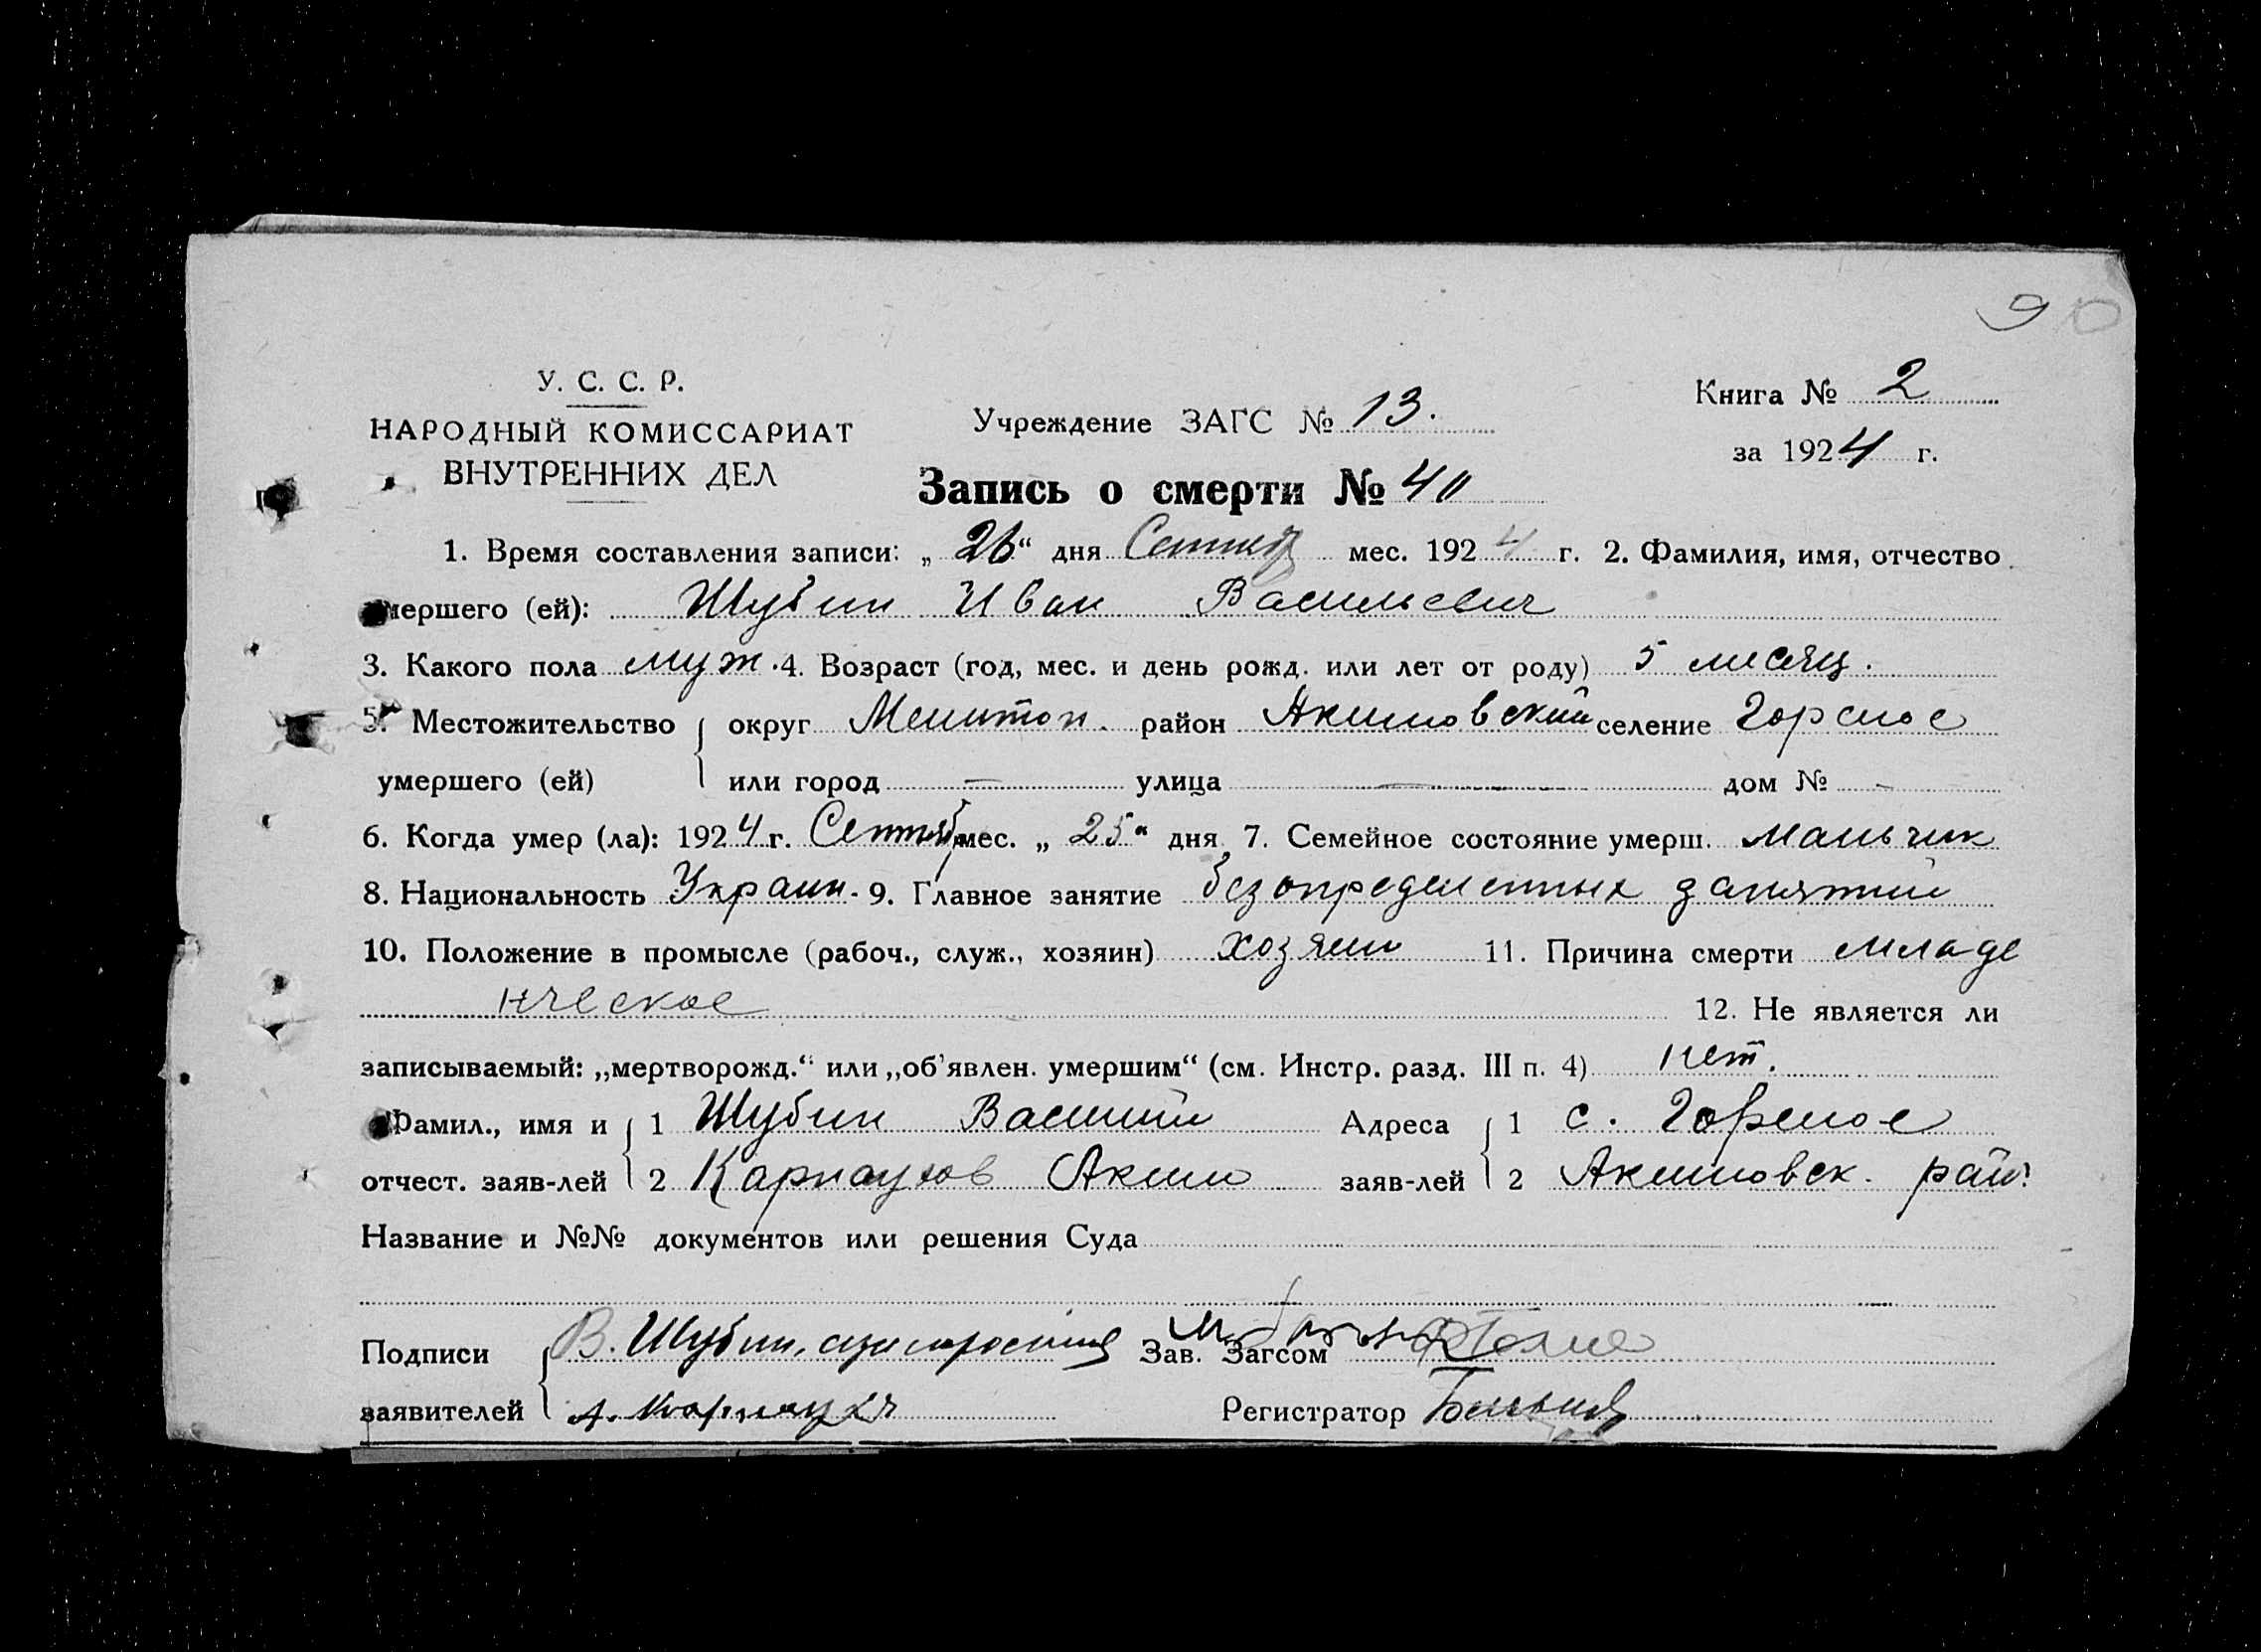 90
У. С. С. Р.
НАРОДНЫЙ КОМИССАРИАТ
ВНУТРЕННИХ ДЕЛ
Учреждение ЗАГС № 13.
Книга № 2
за 1924 г.
Запись о смерти № 40
1. Время составления записи: „26“ дня Сентяб мес. 1924 г. 2. Фамилия, имя, отчество
умершего (ей): Шубин Иван Васильевич
3. Какого пола муж. 4. Возраст (год, мес. и день рожд. или лет от роду) 5 месяц.
5. Местожительство округ Мелитоп. район Акимовский селение Горелое
умершего (ей) или город — улица — дом № -
6. Когда умер (ла): 1924 г. Сентябр мес. „25“ дня 7. Семейное состояние умерш. мальчик
8. Национальность Украин. 9. Главное занятие без определенных занятий
10. Положение в промысле (рабоч., служ., хозяин) хозяин 11. Причина смерти младе
нческое 12. Не является ли
записываемый: „мертворожд.“ или „об'явлен. умершим“ (см. Инстр. разд. III п. 4) нет.
Фамил., имя и 1 Шубин Василий Адреса 1 с. Горелое
отчест. заяв-лей 2 Карнаухов Аким заяв-лей 2 Акимовск. рай.
Название и №№ документов или решения Суда
Подписи В. Шубин, Зав. Загсом
заявителей А. Карнаух Регистратор